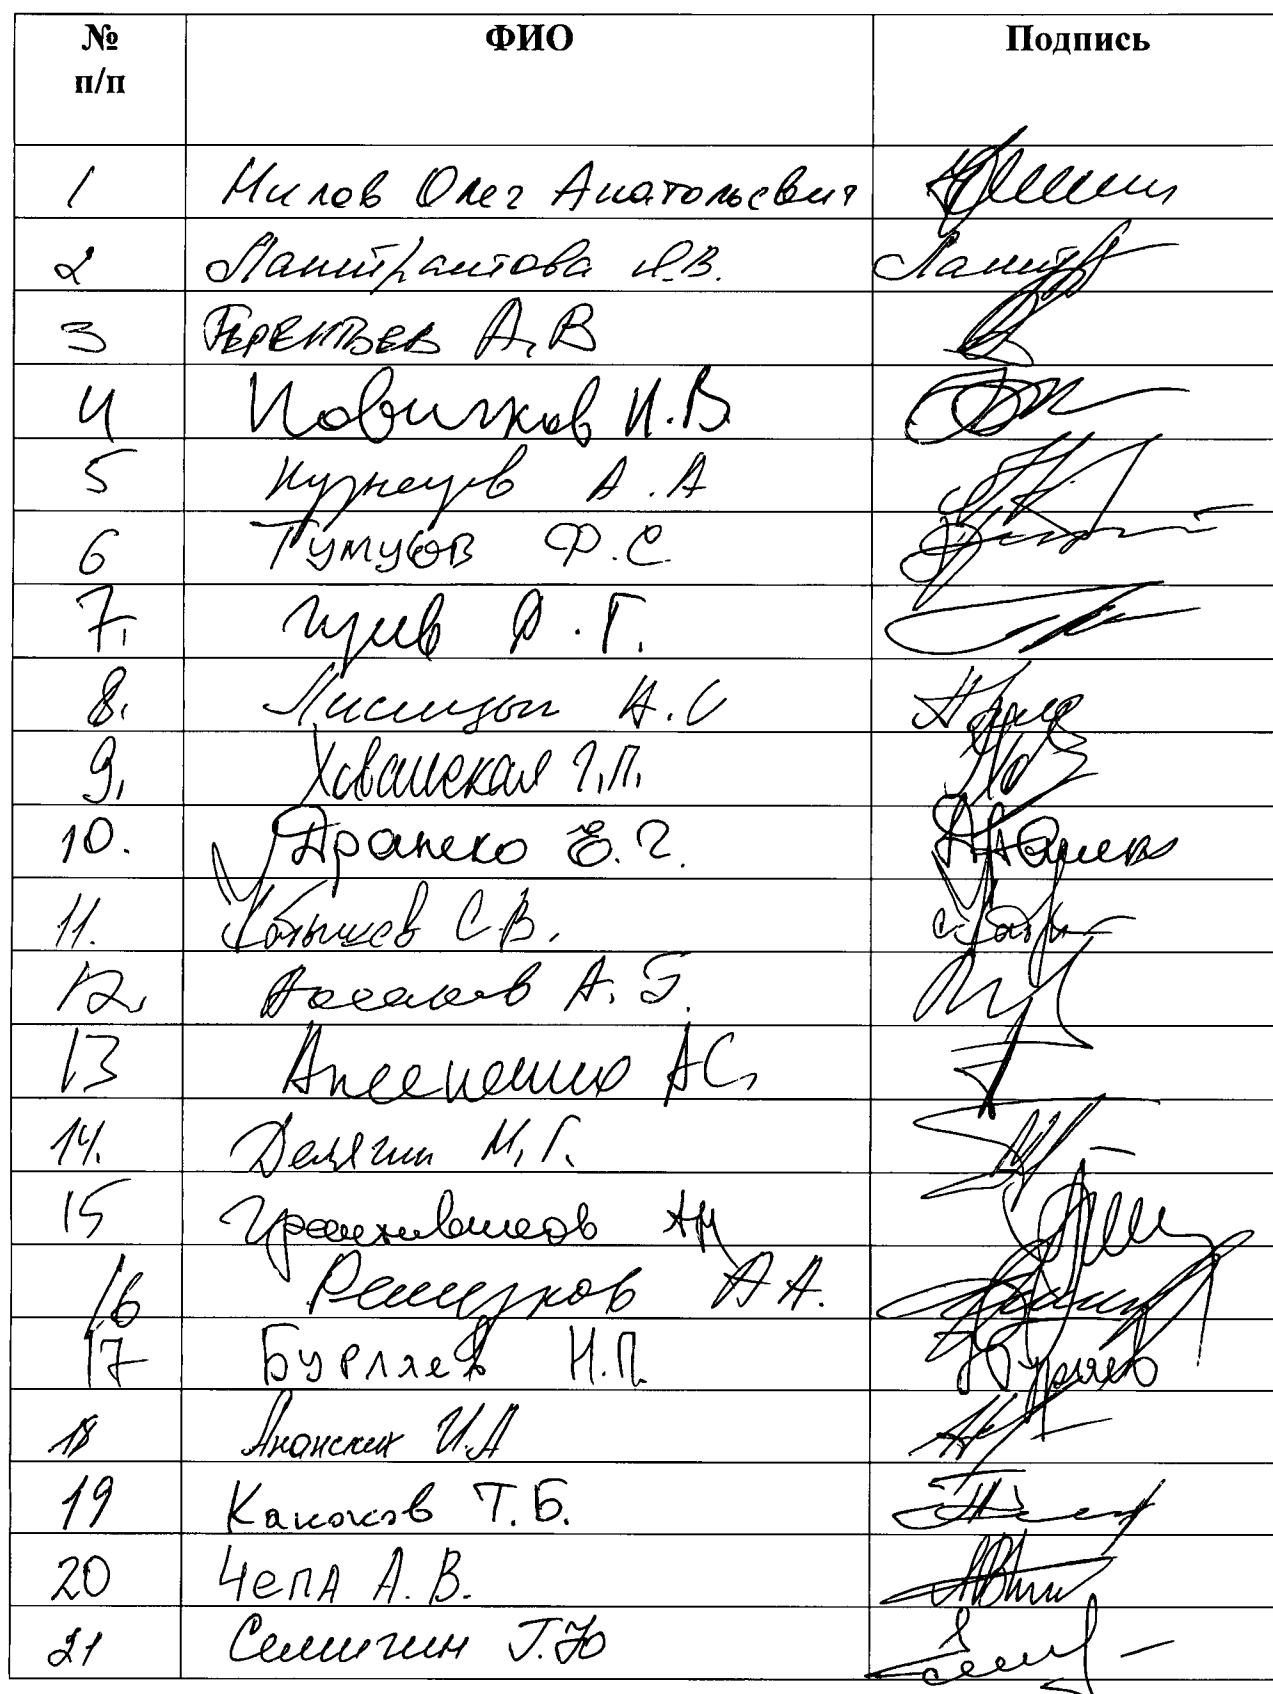 № п/п ФИО Подпись
1 Нилов Олег Анатольевич
2 Лантратова Я.В.
3 Терентьев А.В
4 Новичков Н.В.
5 Кузнецов А.А
6 Тумусов Ф.С.
7. Гусев Д.Г.
8. Лисицын А.С
9. Хованская Г.П.
10. Драпеко Е.Г.
11. Кабышев С.В.
12. А.Б.
13 Аксененко АС,
14. Делягин М.Г.
15 Грешневиков АН
16 Ремезков А А.
17 Бурляев Н.П.
18 Ананских И.А
19 Каноков Т.Б.
20 Чепа А.В.
21 Семигин Г.Ю